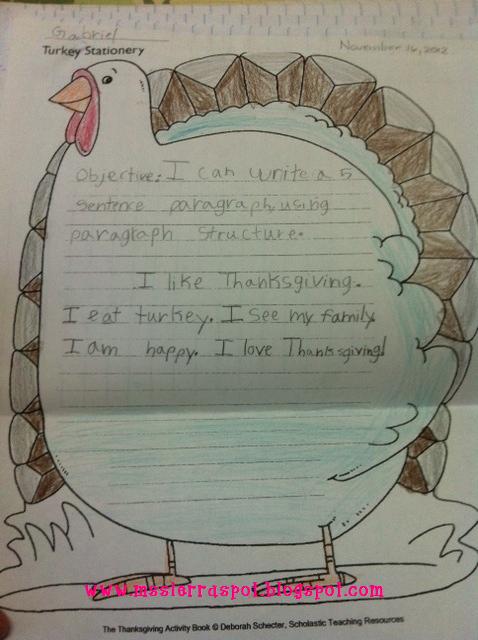 Gabriel
Turkey Stationery
November 16, 2012
Objective: I can write a 5
sentence paragraph using
paragraph structure.
I like Thanksgiving.
I eat turkey. I see my family.
I am happy. I love Thanksgiving!
www.mssierraspot.blogspot.com
The Thanksgiving Activity Book © Deborah Schecter, Scholastic Teaching Resources